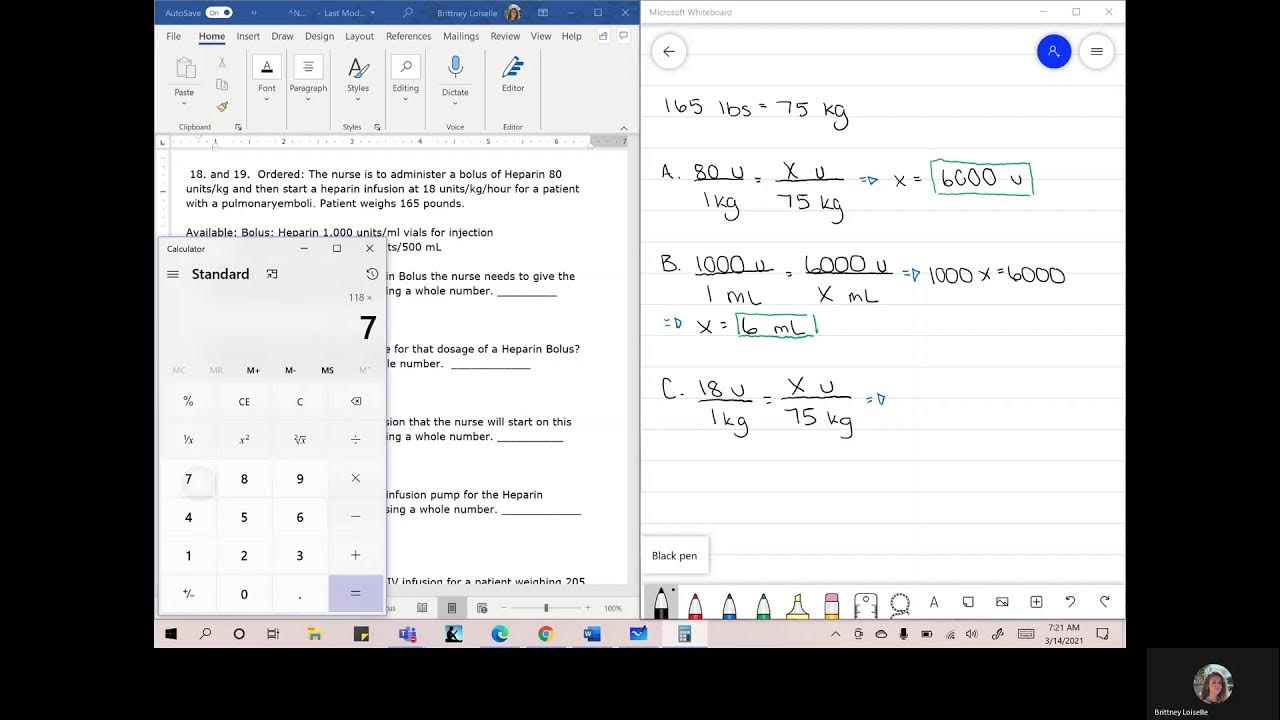 AutoSave On ^N... - Last Mod... Brittney Loiselle
File Home Insert Draw Design Layout References Mailings Review View Help
Paste Font Paragraph Styles Editing Dictate Editor
Clipboard Styles Voice Editor
1 2 3 4 5 6 7
18. and 19. Ordered: The nurse is to administer a bolus of Heparin 80
units/kg and then start a heparin infusion at 18 units/kg/hour for a patient
with a pulmonaryemboli. Patient weighs 165 pounds.
Available: Bolus: Heparin 1,000 units/ml vials for injection
ts/500 mL
n Bolus the nurse needs to give the
ng a whole number. __________
e for that dosage of a Heparin Bolus?
le number. _____________
sion that the nurse will start on this
ng a whole number. ___________
infusion pump for the Heparin
sing a whole number. _____________
IV infusion for a patient weighing 205
100%
Calculator
Standard
118 ×
7
MC MR M+ M- MS M˅
% CE C
¹/x x² ²√x ÷
7 8 9 ×
4 5 6 −
1 2 3 +
+/- 0 . =
Microsoft Whiteboard
165 lbs = 75 kg
A. 80 u = X u ⇒ x = 6000 u
1kg 75 kg
B. 1000 u = 6000 u ⇒ 1000 x = 6000
1 mL X mL
⇒ x = 6 mL
C. 18 u = X u ⇒
1kg 75 kg
Black pen
7:21 AM
3/14/2021
Brittney Loiselle